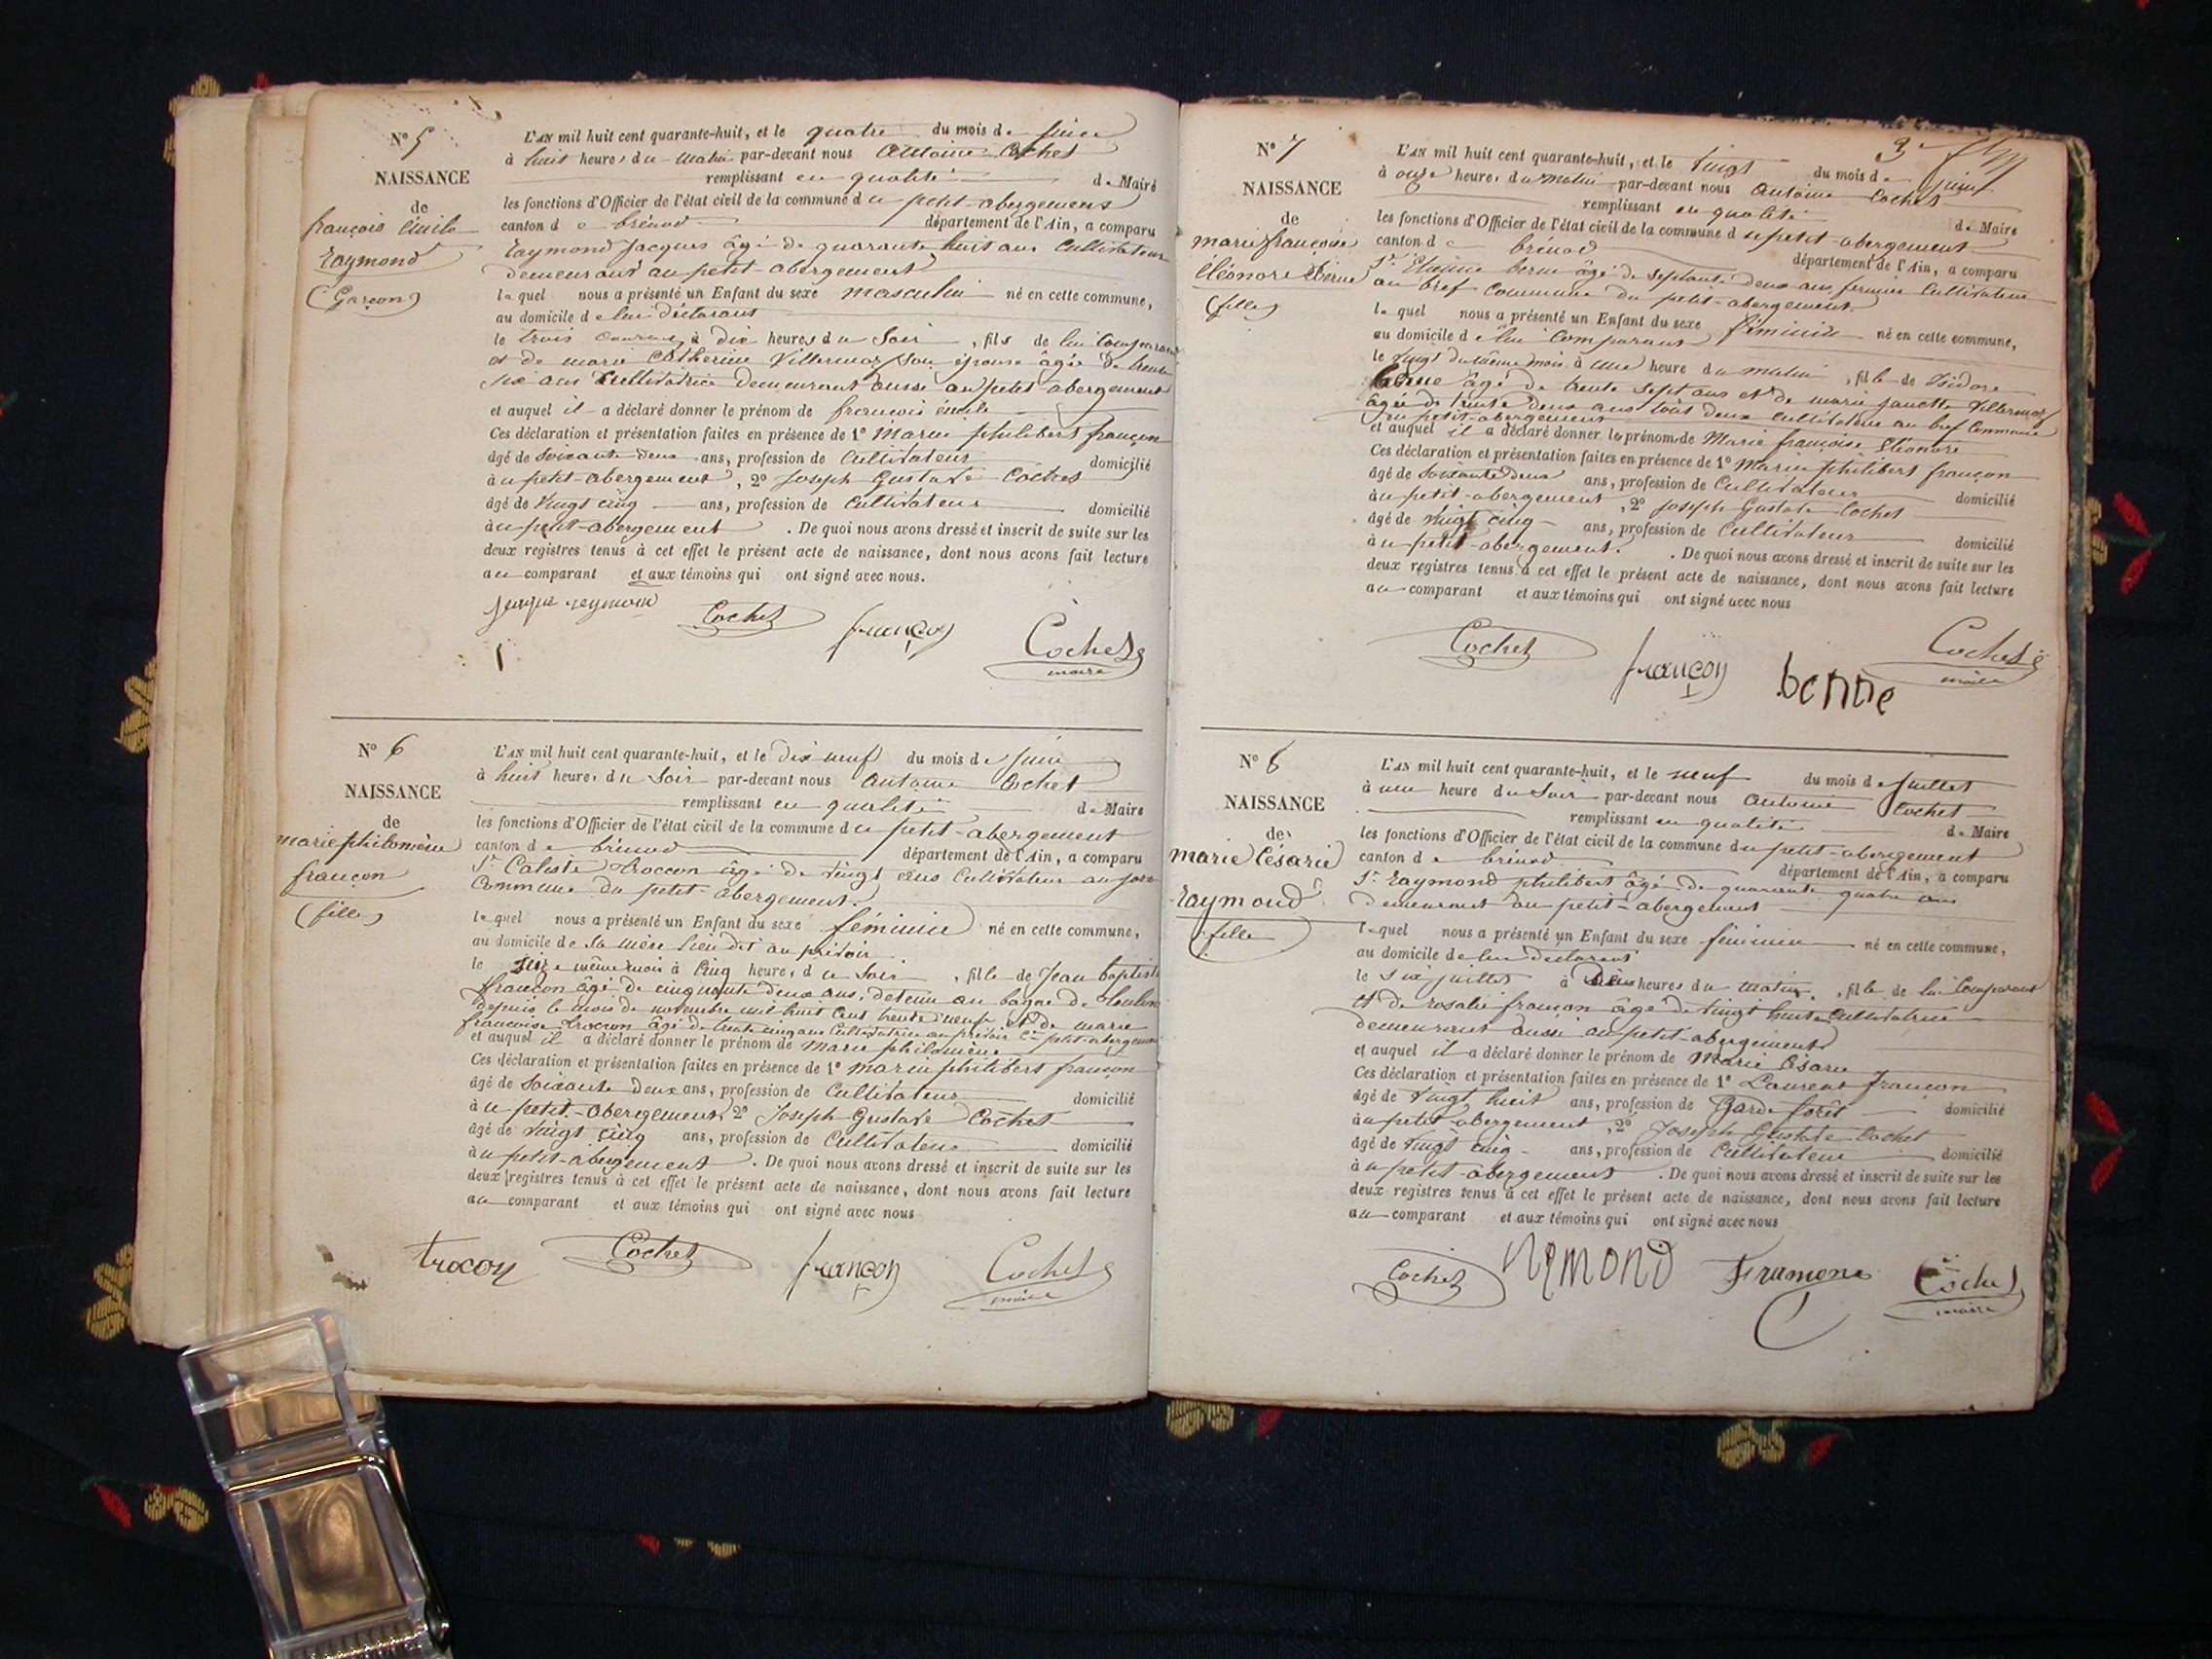 N° 5
NAISSANCE
de
françois émile
Raymond
(Garçon)
L'AN mil huit cent quarante-huit, et le quatre du mois de juin
à huit heures du matin par-devant nous Antoine Cochet
remplissant en qualité de Maire
les fonctions d'Officier de l'état civil de la commune du petit-abergement
canton de brénod département de l'Ain, a comparu
Raymond Jacques âgé de quarante huit ans Cultivateur
demeurant au petit-abergement
lequel nous a présenté un Enfant du sexe masculin né en cette commune,
au domicile de lui déclarant
le trois courant à dix heures du Soir, fils de lui Comparant
et de marie Catherine Villermoz Son épouse âgée de trente
six ans Cultivatrice demeurant aussi au petit-abergement
et auquel il a déclaré donner le prénom de françois émile
Ces déclaration et présentation faites en présence de 1° Marin philibert françon
âgé de soixante deux ans, profession de Cultivateur domicilié
au petit-abergement, 2° Joseph Gustave Cochet
âgé de Vingt cinq ans, profession de Cultivateur domicilié
au petit-abergement. De quoi nous avons dressé et inscrit de suite sur les
deux registres tenus à cet effet le présent acte de naissance, dont nous avons fait lecture
au comparant et aux témoins qui ont signé avec nous.
Cochet françon Cochet
maire
N° 6
NAISSANCE
de
marie philomène
françon
(fille)
L'AN mil huit cent quarante-huit, et le dix neuf du mois de juin
à huit heures du Soir par-devant nous Antoine Cochet
remplissant en qualité de Maire
les fonctions d'Officier de l'état civil de la commune du petit-abergement
canton de brénod département de l'Ain, a comparu
Sr. Caliste Troccon âgé de vingt ans Cultivateur au
Commune du petit-abergement.
lequel nous a présenté un Enfant du sexe féminin né en cette commune,
au domicile de Sa mère lieu dit au
le même mois à Cinq heures du Soir, fille de Jean baptiste
françon âgé de cinquante deux ans, détenu au bagne de Toulon
depuis le mois de novembre mil huit cent trente neuf et de marie
françoise troccon âgé de trente cinq ans Cultivatrice au petit-abergement
et auquel il a déclaré donner le prénom de Marie philomène
Ces déclaration et présentation faites en présence de 1° Marin philibert françon
âgé de Soixante deux ans, profession de Cultivateur domicilié
au petit-abergement, 2° Joseph Gustave Cochet
âgé de Vingt cinq ans, profession de Cultivateur domicilié
au petit-abergement. De quoi nous avons dressé et inscrit de suite sur les
deux registres tenus à cet effet le présent acte de naissance, dont nous avons fait lecture
au comparant et aux témoins qui ont signé avec nous
trocon Cochet françon Cochet
maire
N° 7
NAISSANCE
de
marie françoise
éléonore Berne
(fille)
L'AN mil huit cent quarante-huit, et le Vingt du mois de juin
à onze heures du matin par-devant nous Antoine Cochet
remplissant en qualité de Maire
les fonctions d'Officier de l'état civil de la commune du petit-abergement
canton de brénod département de l'Ain, a comparu
Sr. Etienne berne âgé de Septante deux ans fermier Cultivateur
au bref Commune du petit-abergement.
lequel nous a présenté un Enfant du sexe féminin né en cette commune,
au domicile de lui Comparant
le Vingt du même mois à une heure du matin, fille de Isidore
berne âgé de trente Sept ans et de marie Villermoz
âgée de trente deux ans tous deux Cultivateurs au bref Commune
du petit-abergement
et auquel il a déclaré donner le prénom de Marie françoise Eléonore
Ces déclaration et présentation faites en présence de 1° Marin philibert françon
âgé de Soixante deux ans, profession de Cultivateur domicilié
au petit-abergement, 2° Joseph Gustave Cochet
âgé de Vingt cinq ans, profession de Cultivateur domicilié
au petit-abergement. De quoi nous avons dressé et inscrit de suite sur les
deux registres tenus à cet effet le présent acte de naissance, dont nous avons fait lecture
au comparant et aux témoins qui ont signé avec nous
Cochet françon berne Cochet
maire
N° 8
NAISSANCE
de
marie Césarie
Raymond
(fille)
L'AN mil huit cent quarante-huit, et le neuf du mois de Juillet
à une heure du Soir par-devant nous Antoine Cochet
remplissant en qualité de Maire
les fonctions d'Officier de l'état civil de la commune du petit-abergement
canton de brénod département de l'Ain, a comparu
Sr. Raymond philibert âgé de quarante quatre ans
demeurant au petit-abergement
lequel nous a présenté un Enfant du sexe féminin né en cette commune,
au domicile de lui déclarant
le Six juillet à heures du matin, fille de lui Comparant
et de rosalie françon âgé de vingt huit Cultivatrice
demeurant aussi au petit-abergement
et auquel il a déclaré donner le prénom de Marie Césarie
Ces déclaration et présentation faites en présence de 1° Laurent françon
âgé de Vingt huit ans, profession de Garde forêt domicilié
au petit-abergement, 2° Joseph Gustave Cochet
âgé de Vingt cinq ans, profession de Cultivateur domicilié
au petit-abergement. De quoi nous avons dressé et inscrit de suite sur les
deux registres tenus à cet effet le présent acte de naissance, dont nous avons fait lecture
au comparant et aux témoins qui ont signé avec nous
Cochet Cochet
maire